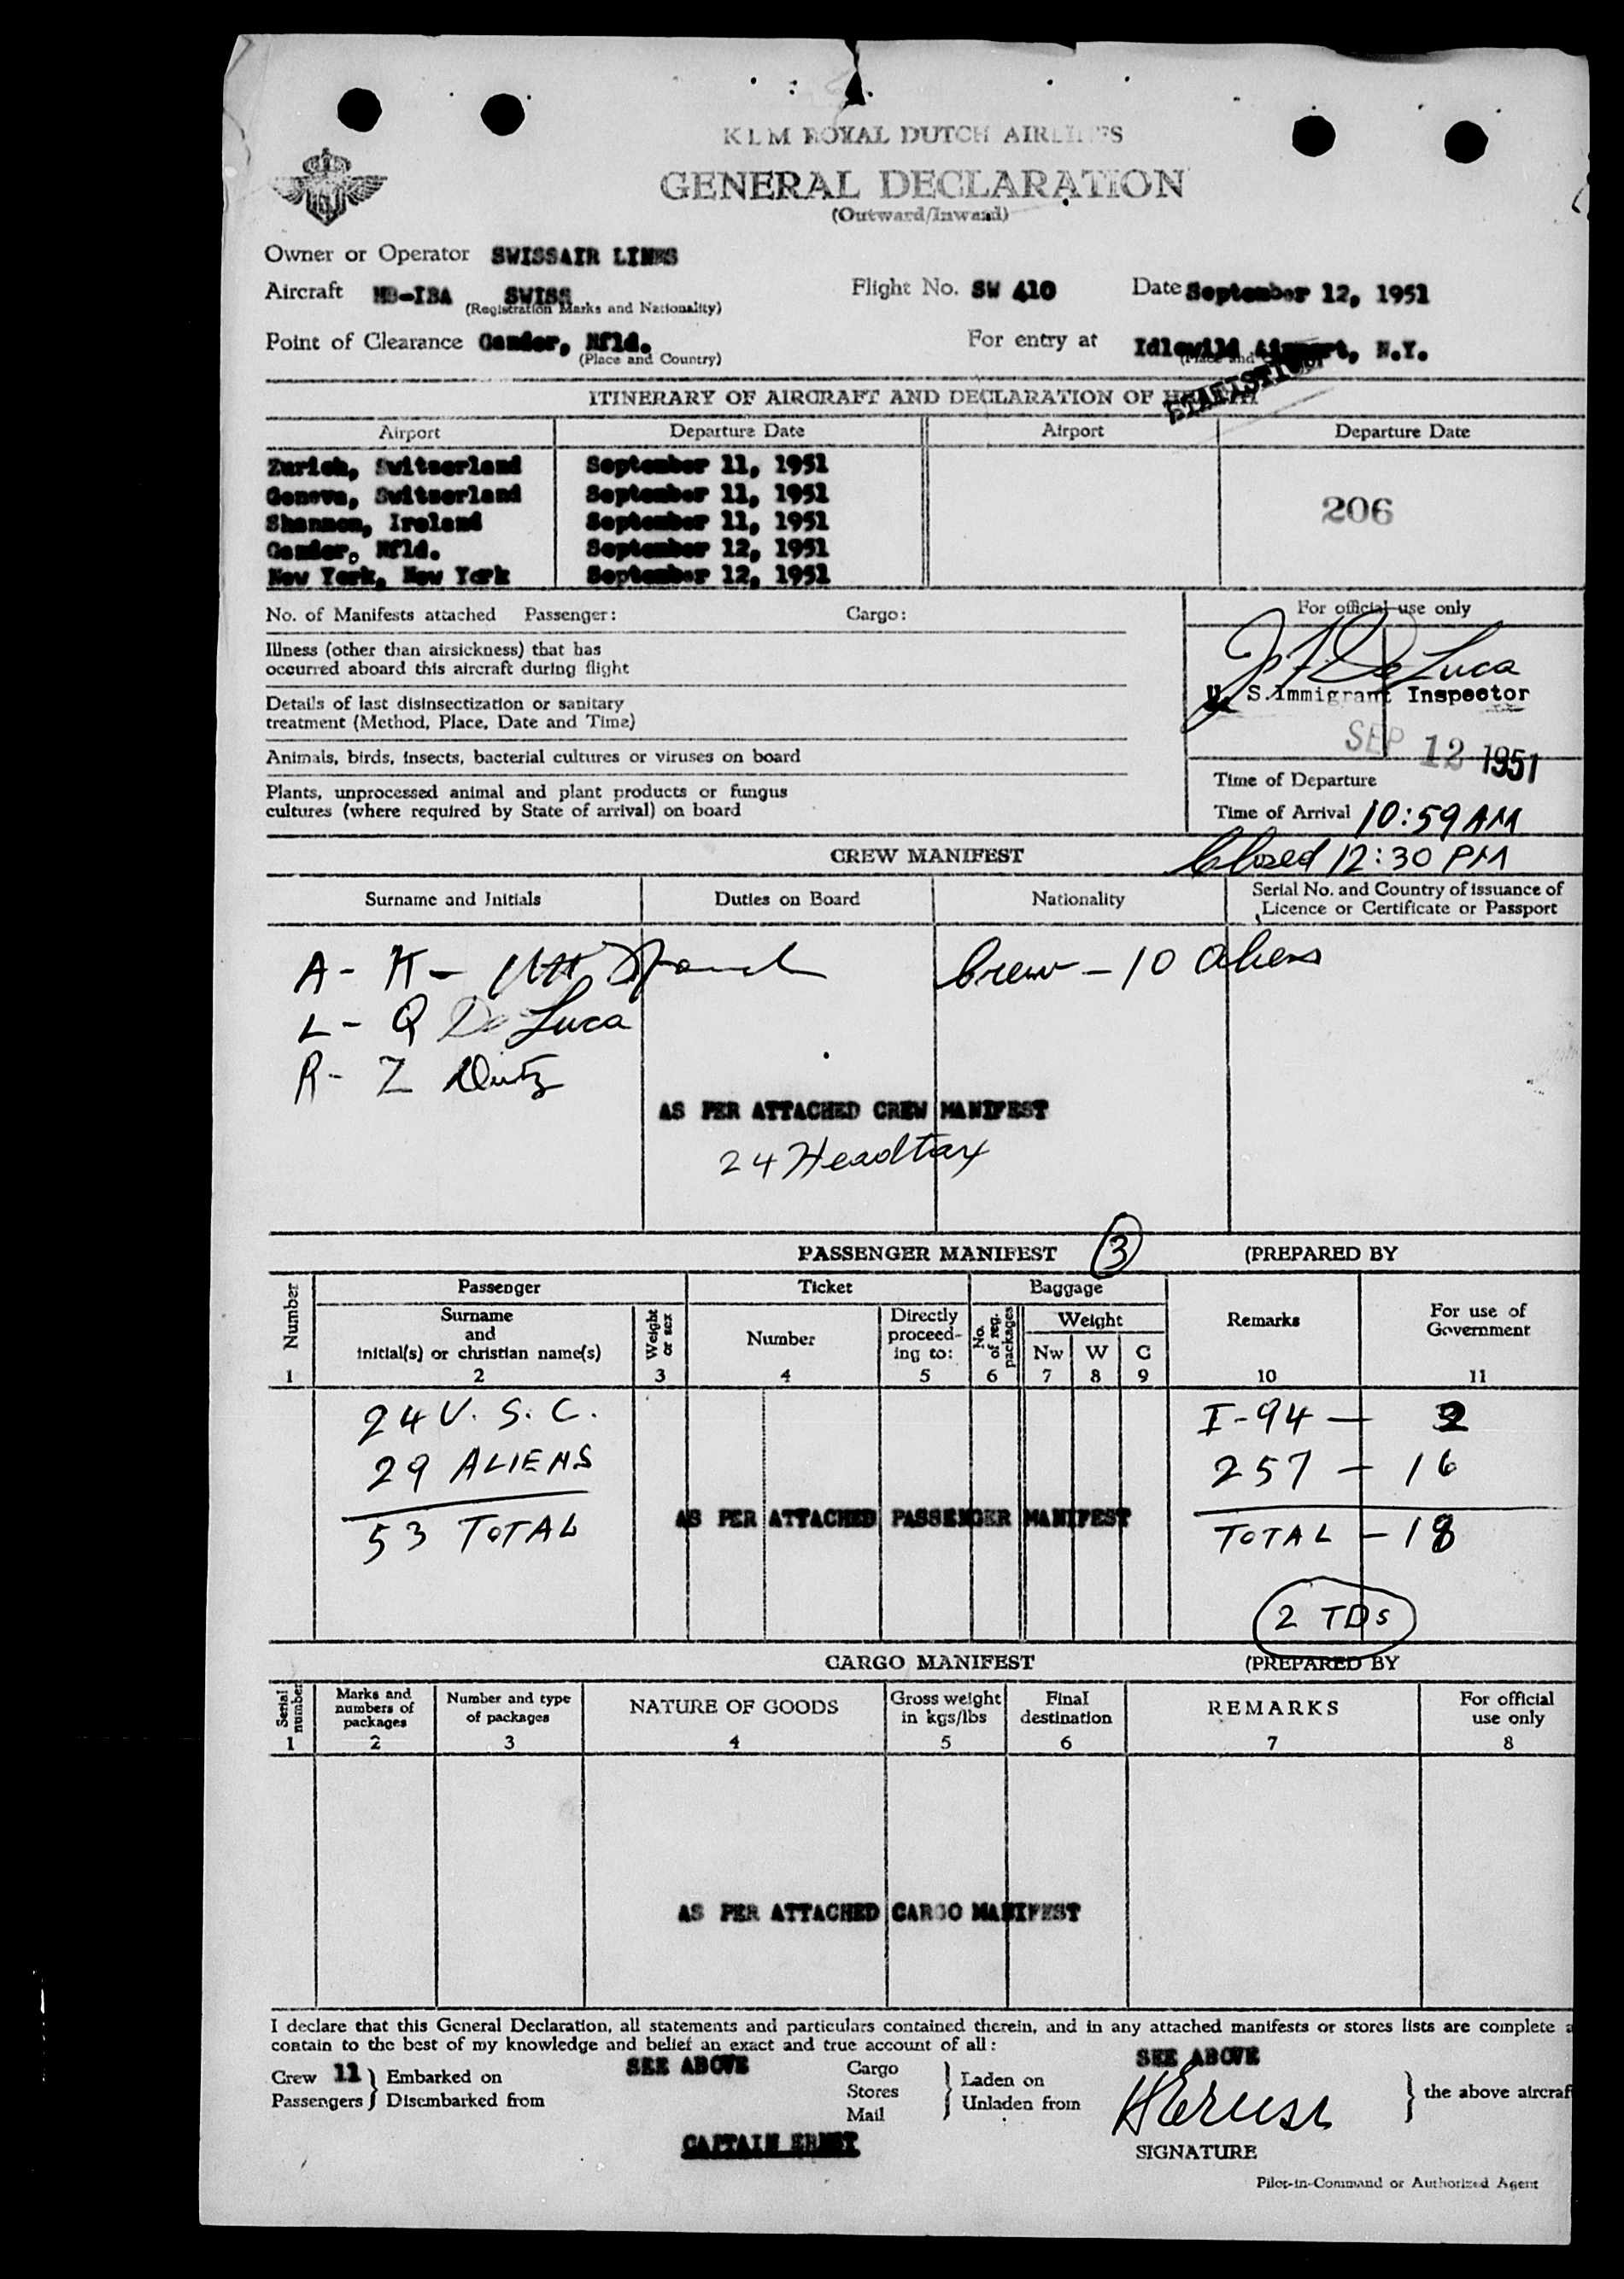 KLM ROYAL DUTCH AIRLINES
GENERAL DECLARATION
(Outward/Inward)
Owner or Operator SWISSAIR LINES
Aircraft HB-IBA SWISS
(Registration Marks and Nationality)
Flight No. SW 410
Date September 12, 1951
Point of Clearance Gander, Nfld.
(Place and Country)
For entry at Idlewild Airport, N.Y.
STATISTICS
ITINERARY OF AIRCRAFT AND DECLARATION OF HEALTH
Airport Departure Date Airport Departure Date
Zurich, Switzerland September 11, 1951
Geneva, Switzerland September 11, 1951
Shannon, Ireland September 11, 1951
Gander, Nfld. September 12, 1951
New York, New York September 12, 1951
206
No. of Manifests attached Passenger: Cargo:
Illness (other than airsickness) that has
occurred aboard this aircraft during flight
Details of last disinsectization or sanitary
treatment (Method, Place, Date and Time)
Animals, birds, insects, bacterial cultures or viruses on board
Plants, unprocessed animal and plant products or fungus
cultures (where required by State of arrival) on board
For official use only
De Luca
U. S. Immigrant Inspector
SEP 12 1951
Time of Departure
Time of Arrival 10:59 AM
Closed 12:30 PM
CREW MANIFEST
Surname and Initials Duties on Board Nationality Serial No. and Country of issuance of
Licence or Certificate or Passport
A - K - Crew - 10 aliens
L - Q De Luca
R - Z
AS PER ATTACHED CREW MANIFEST
24 Headtax
PASSENGER MANIFEST 3 (PREPARED BY
Number Passenger Ticket Baggage Remarks For use of
Government
Surname
and
initial(s) or christian name(s)
Weight or sex
Number
Directly
proceed-
ing to:
No. of reg. packages
Weight
Nw W C
1 2 3 4 5 6 7 8 9 10 11
24 U. S. C. I-94 — 2
29 ALIENS 257 — 16
53 TOTAL AS PER ATTACHED PASSENGER MANIFEST TOTAL — 18
2 TDs
CARGO MANIFEST (PREPARED BY
Serial number
Marks and
numbers of
packages
Number and type
of packages
NATURE OF GOODS
Gross weight
in kgs/lbs
Final
destination
REMARKS
For official
use only
1 2 3 4 5 6 7 8
AS PER ATTACHED CARGO MANIFEST
I declare that this General Declaration, all statements and particulars contained therein, and in any attached manifests or stores lists are complete a
contain to the best of my knowledge and belief an exact and true account of all:
Crew 11 Embarked on SEE ABOVE Cargo Laden on SEE ABOVE
Passengers Disembarked from Stores Unladen from the above aircraf
Mail
CAPTAIN ERNST
SIGNATURE
Pilot-in-Command or Authorized Agent